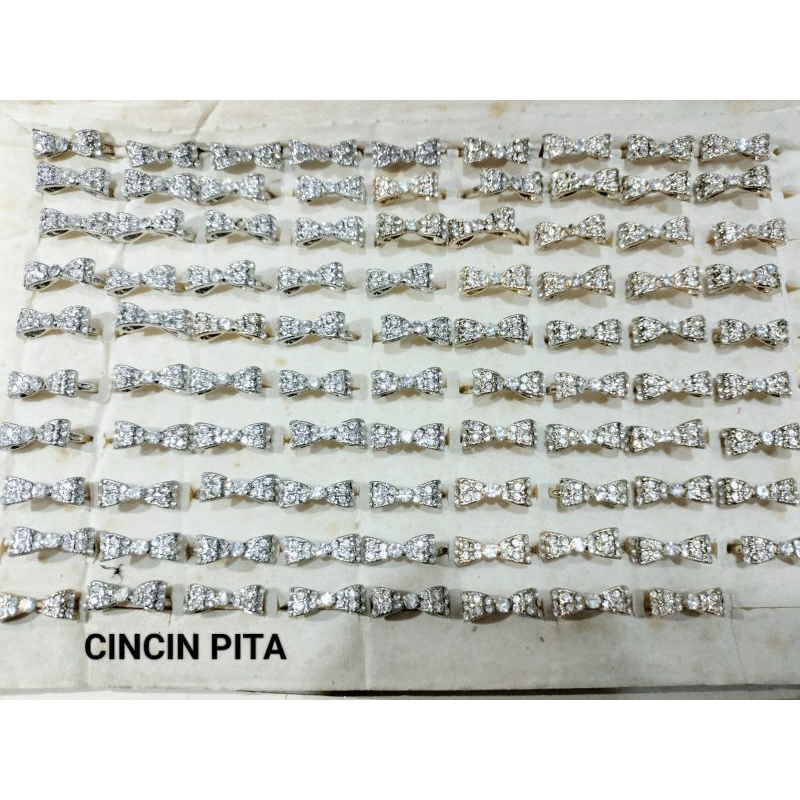 CINCIN PITA